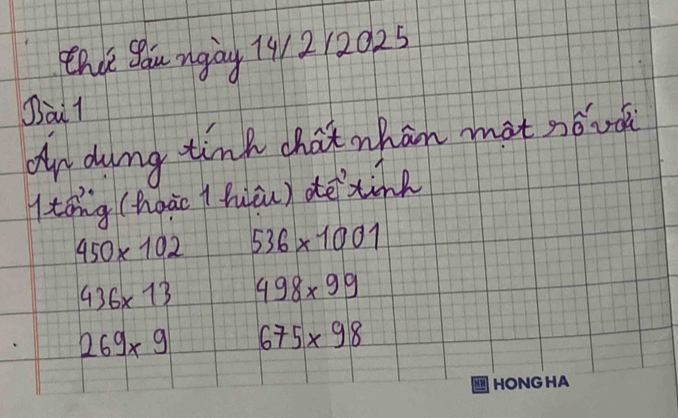 Thứ Sáu ngày 14/2/2025
Bài 1
Áp dụng tính chất nhân một số với
1 tổng (hoặc 1 hiệu) để tính
450 x 102 536 x 1001
436 x 13 498 x 99
269 x 9 675 x 98
HONG HA